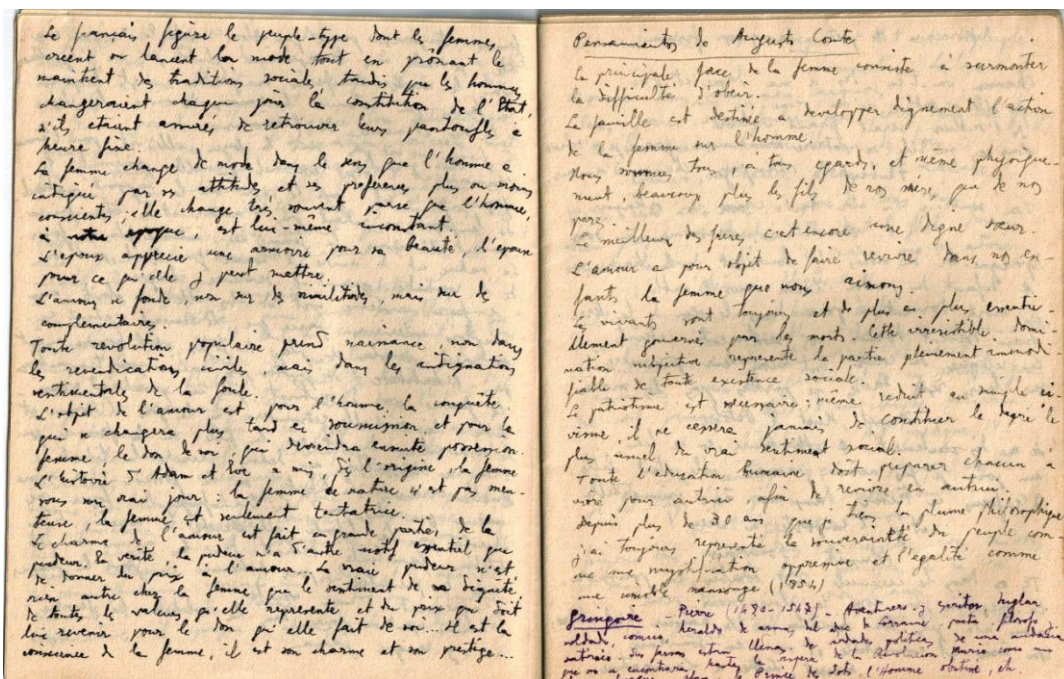 Le français figure le peuple-type dont les femmes
créent ou lancent la mode tout en prônant le
maintient des traditions sociale, tandis que les hommes
changeraient chaque jour la constitution de l'Etat,
s'ils étaient assurés de retrouver leurs pantoufles à
heure fixe.
La femme change de mode dans le sens que l'homme a
indiqué par ses attitudes et ses préférences plus ou moins
conscientes; elle change très souvent parce que l'homme,
à notre époque, est lui-même inconstant.
L'époux apprécie une armoire pour sa beauté, l'épouse
pour ce qu'elle y peut mettre.
L'amour se fonde, non sur des similitudes, mais sur de
complementaires.
Toute revolution populaire prend naissance, non dans
les revendications civiles, mais dans les indignations
sentimentales de la foule.
L'objet de l'amour est, pour l'homme, la conquête
qui se changera plus tard en soumission, et pour la
femme le don de soi, qui deviendra ensuite possession.
L'histoire d'Adam et Eve a mis, dès l'origine, la femme
sous son vrai jour: la femme de nature n'est pas men-
teuse, la femme est seulement tentatrice.
Le charme de l'amour est fait en grande parties de la
pudeur. En verité, la pudeur n'a d'autre motif essentiel que
de donner du prix à l'amour... La vraie pudeur n'est
rien autre chez la femme, que le sentiment de sa dignité,
de toutes les valeurs qu'elle represente et du prix qui doit
lui revenir pour le don qu'elle fait de soi... il est la
conscience de la femme, il est son charme et son prestige...
Pensamientos de Augusto Comte
La principale de la femme consiste à surmonter
la difficulté d'obeir.
La famille est destinée a developper dignement l'action
de la femme sur l'homme.
Nous sommes tous, a tous egards, et même physique-
ment, beaucoup plus les fils de nos mère, que de nos
père.
Le meilleur des freres, c'et encore une digne sœur.
L'amour a pour objet de faire revivre dans nos en-
fants la femme que nous aimons.
Les vivants sont toujours et de plus en plus essentie
llement gouvernés par les morts. Cette irresistible domi-
nation subjective represente la partie pleinement immodi-
fiable de toute existence sociale.
Le patriotisme est necessaire; meme reduit au simple ci-
visme, il ne cessera jamais de constituer le degré le
plus usuel du vrai sentiment social.
Toute l'education humaine doit preparer chacun à
vivre pour autrui, afin de revivre en autrui.
Depuis plus de 30 ans que je tiens la plume philosophique
j'ai toujours représenté la souveraineté du peuple com-
me une mystification oppressive et l'egalité comme
une ignoble mensonge (1854)
Gringoire - Pierre (1490-1547) - Aventurero y escritor, juglar,
soldado, comico, heraldo de armas del duc de Lorraine, poeta, filosofo
satirico. Sus piezas estan llenas de politicas, de una
de la Revolucion
le Prince des Sots, l'Homme obstiné, etc.